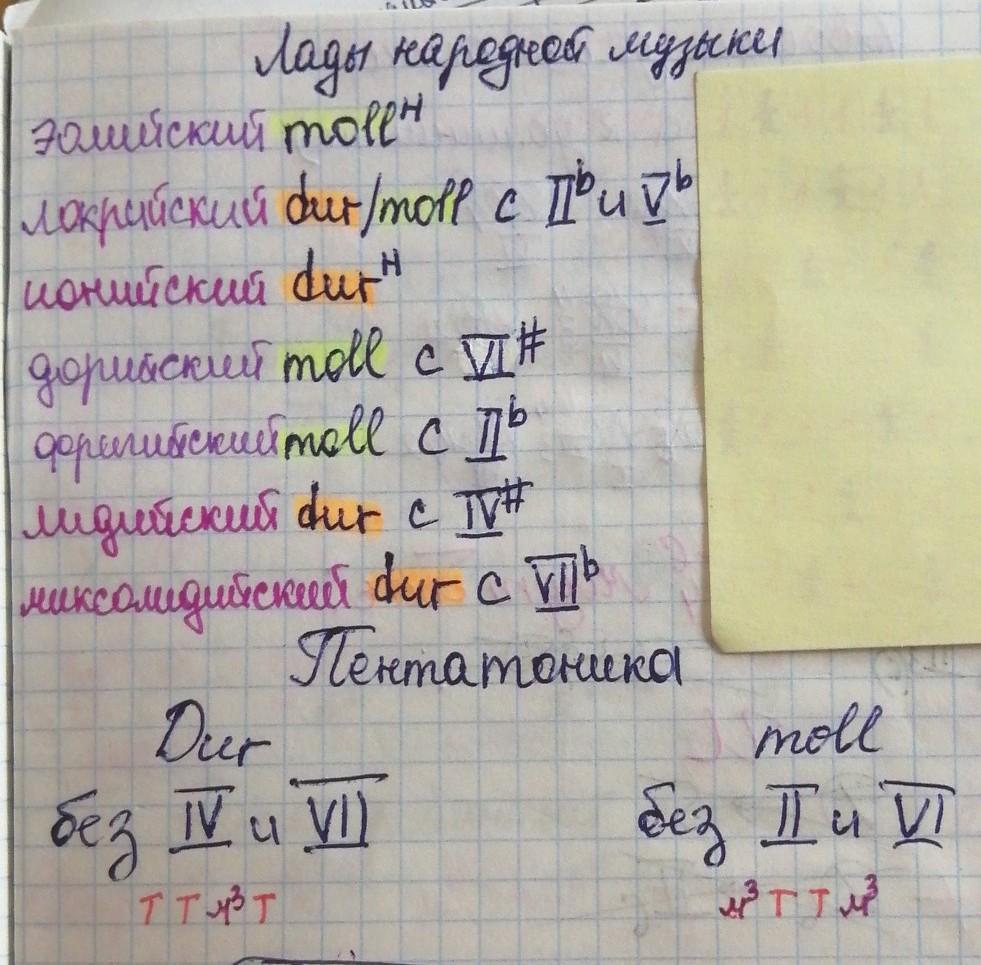 Лады народной музыки
эолийский mollᴴ
локрийский dur/moll с IIᵇ и Vᵇ
ионийский durᴴ
дорийский moll с VI#
фригийский moll с IIᵇ
лидийский dur с IV#
миксолидийский dur с VIIᵇ
Пентатоника
Dur moll
без IV и VII без II и VI
Т Т м³ Т м³ Т Т м³